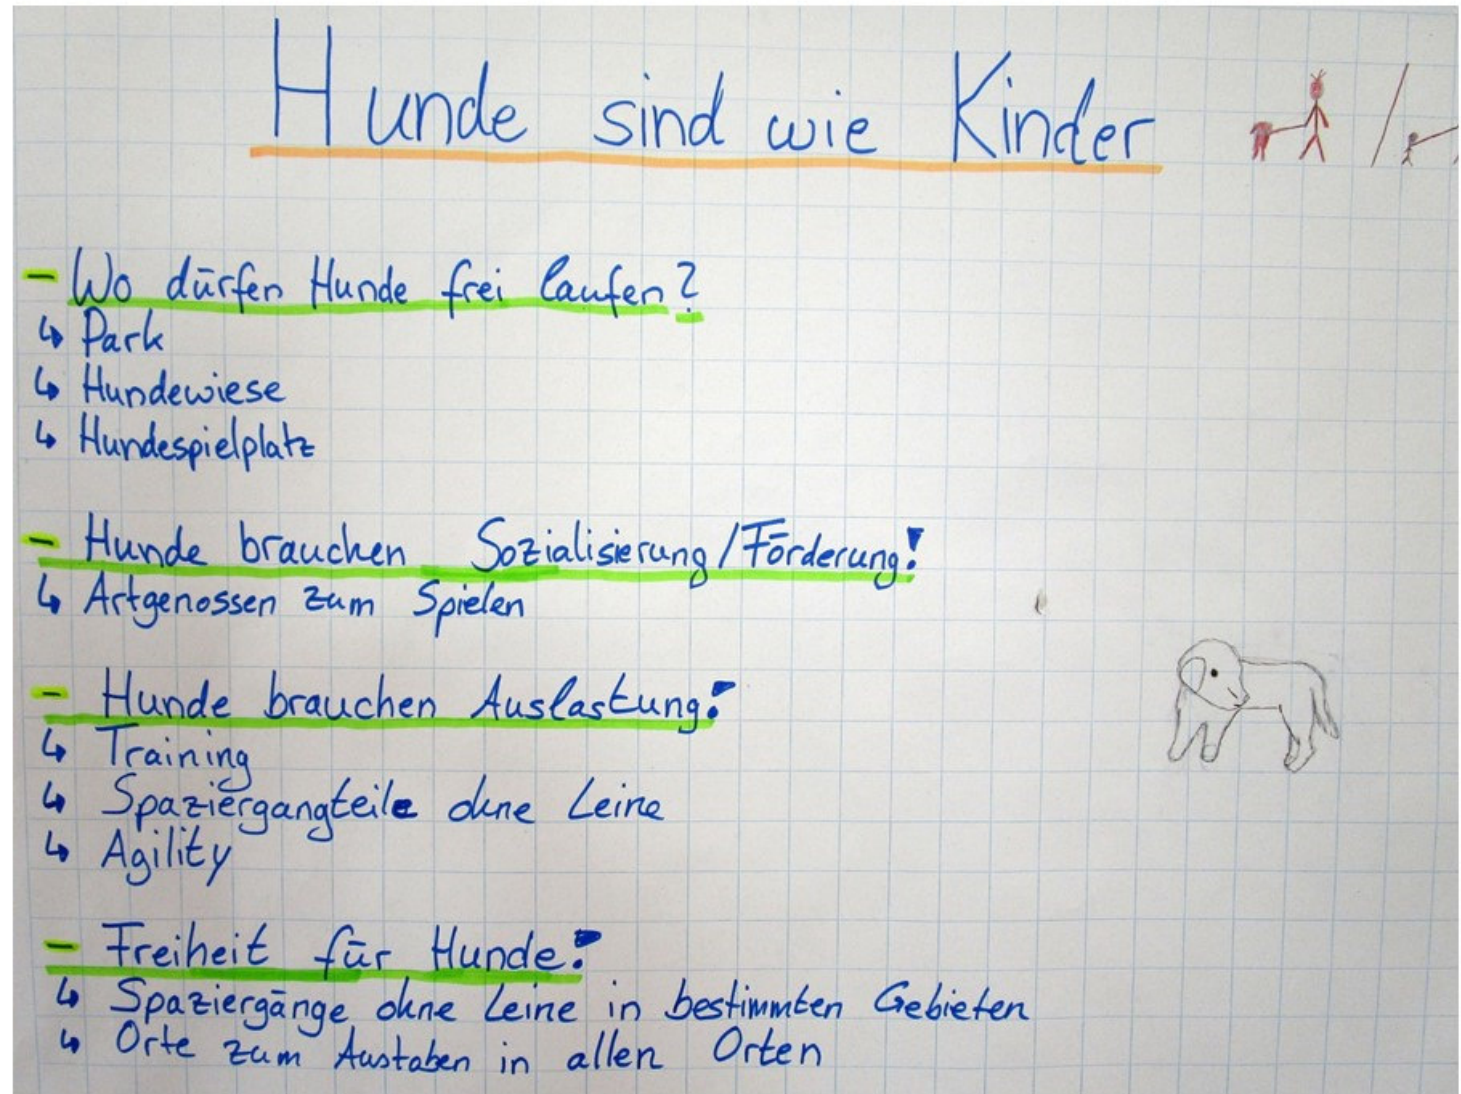 Hunde sind wie Kinder
- Wo dürfen Hunde frei laufen?
↳ Park
↳ Hundewiese
↳ Hundespielplatz
- Hunde brauchen Sozialisierung/Förderung!
↳ Artgenossen zum Spielen
- Hunde brauchen Auslastung!
↳ Training
↳ Spaziergangteile ohne Leine
↳ Agility
- Freiheit für Hunde!
↳ Spaziergänge ohne Leine in bestimmten Gebieten
↳ Orte zum Austoben in allen Orten